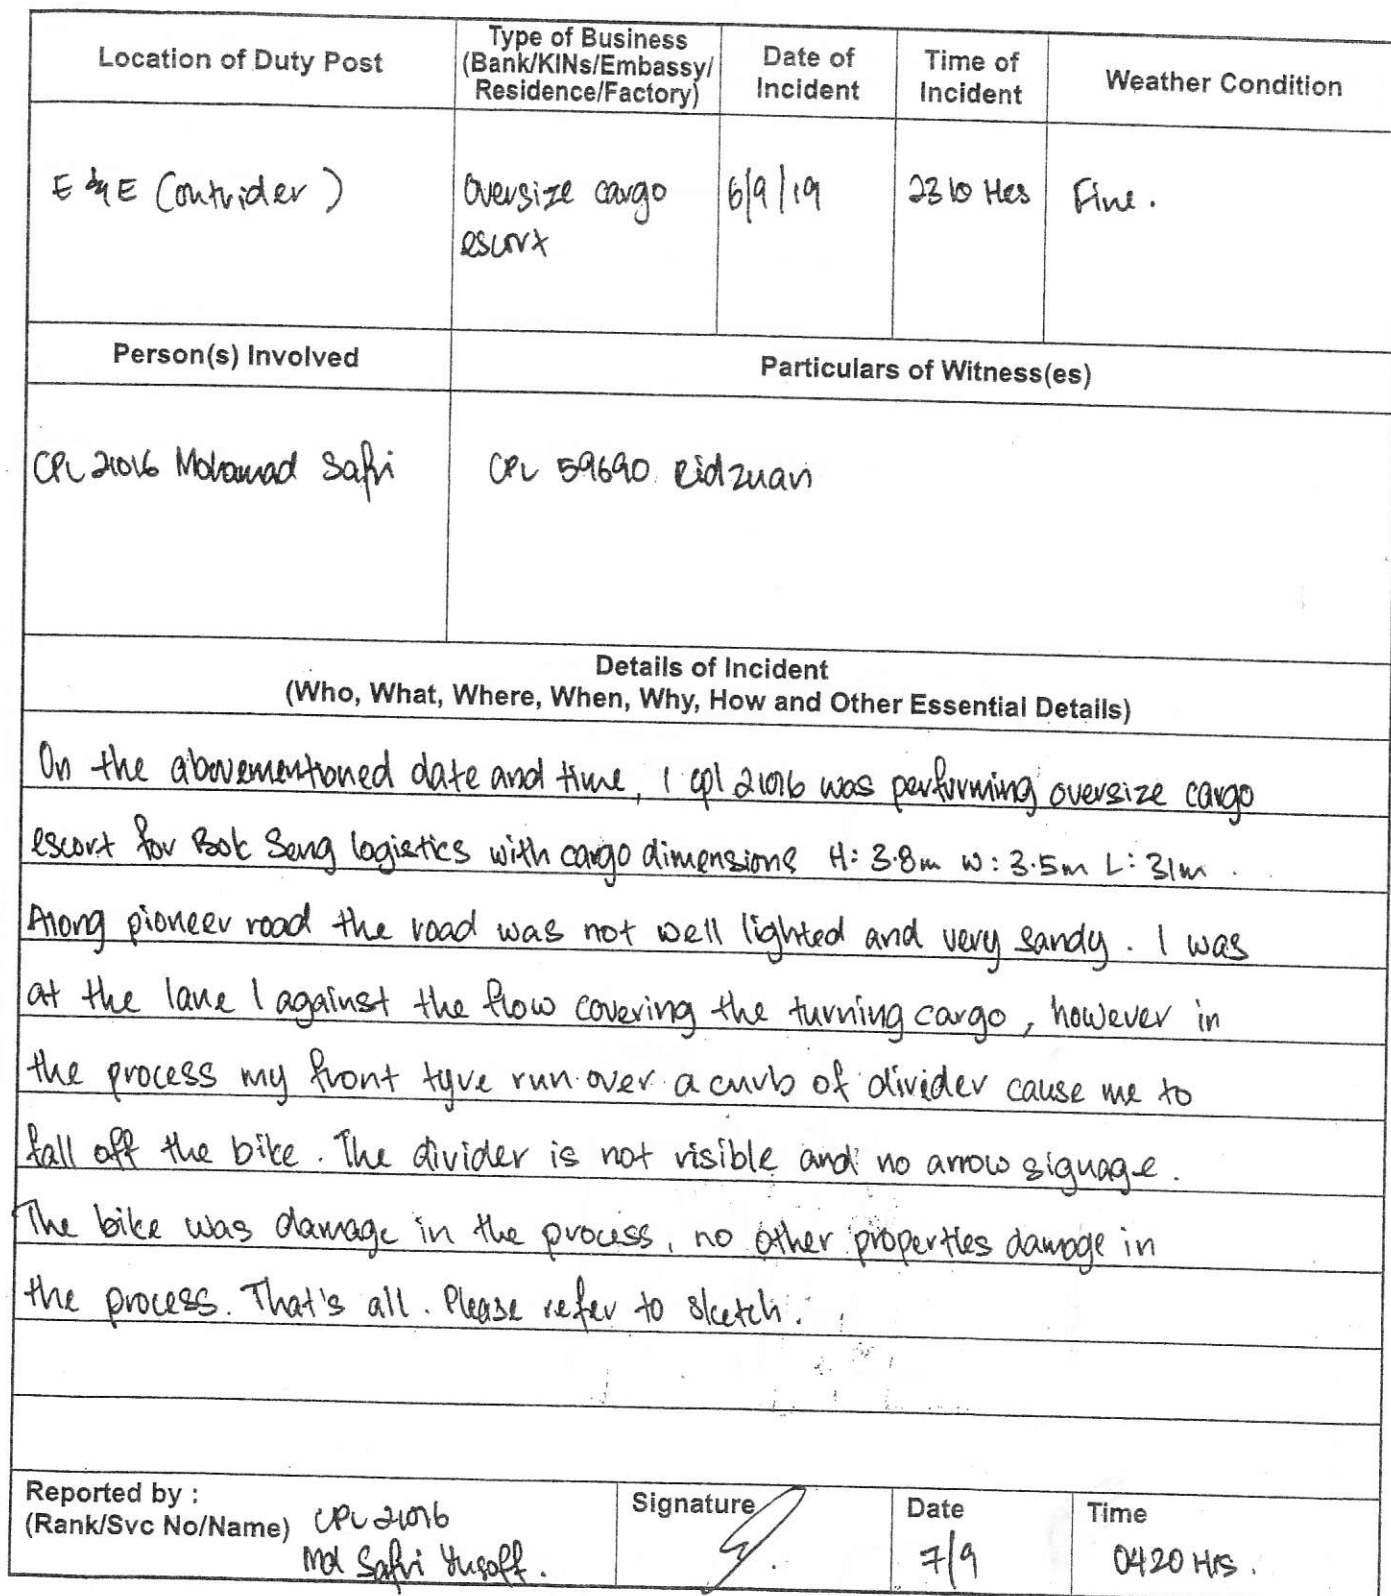 Location of Duty Post
Type of Business
(Bank/KINs/Embassy/
Residence/Factory)
Date of
Incident
Time of
Incident
Weather Condition
E & E (Outrider)
Oversize cargo
escort
6/9/19
2310 Hrs
Fine.
Person(s) Involved
Particulars of Witness(es)
CPL 21016 Mohamad Safri
CPL 59690 Ridzuan
Details of Incident
(Who, What, Where, When, Why, How and Other Essential Details)
On the abovementioned date and time, I cpl 21016 was performing oversize cargo
escort for Bok Seng logistics with cargo dimensions H: 3.8m W: 3.5m L: 31m.
Along pioneer road the road was not well lighted and very sandy. I was
at the lane 1 against the flow covering the turning cargo, however in
the process my front tyre run over a curb of divider cause me to
fall off the bike. The divider is not visible and no arrow signage.
The bike was damage in the process, no other properties damage in
the process. That's all. Please refer to sketch.
Reported by :
(Rank/Svc No/Name) CPL 21016
Md Safri Yusoff.
Signature
Date
7/9
Time
0420 Hrs.